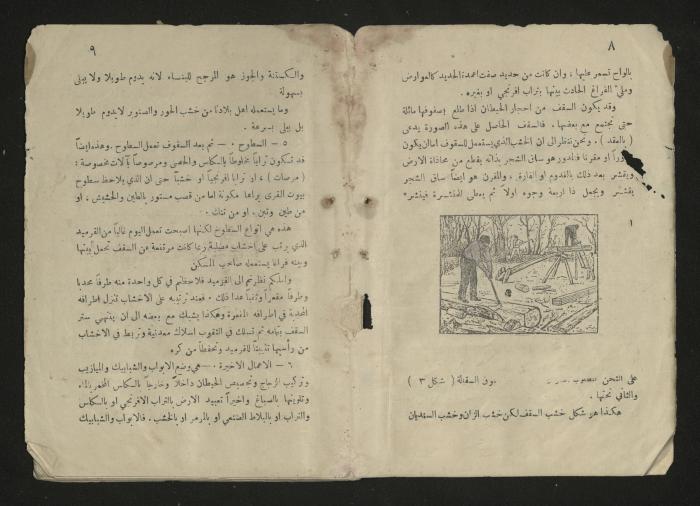 ٨
بالواح تسمر عليها ، وان كانت من حديد صفت اعمدة الحديد كالعوارض
وملئ الفراغ الحادث بينها بتراب افرنجي او بغيره .
وقد يكون السقف من احجار الحيطان اذا طلع بصفوفها مائلة
حتى تجتمع مع بعضها . فالسقف الحاصل على هذه الصورة يدعى
( بالعقد ) . ونحن ننظر الى ان الخشب الذي يستعمل للسقوف اما ان يكون
او مقرنا فالمدور هو ساق الشجر بذاته يقطع من محاذاة الارض
ويقشر بعد ذلك بالقدوم او الفارة . والمقرن هو ايضاً ساق الشجر
يقشر ويجعل ذا اربعة وجوه اولاً ثم يعطى للمنشرة فينشر
١
على الثخن المطلوب فوق السقالة ( شكل ٣ )
والثاني تحتها .
هكذا هو شكل خشب السقف لكن خشب الزان وخشب السنديان
٩
والكستنة والجوز هو المرجح للبناء لانه يدوم طويلا ولا يبلى
بسهولة
وما يستعمله اهل بلادنا من خشب الحور والصنوبر لا يدوم طويلا
بل يبلى بسرعة .
٥ – السطوح . – ثم بعد السقوف تعمل السطوح . وهذه ايضاً
قد تكون تراباً مخلوطاً بالكلس والحصى ومرصوصاً بآلات مخصوصة :
( مرصات ) ، او تراباً افرنجياً او خشباً حتى ان الذي يلاحظ سطوح
بيوت القرى يراها مكونة اما من قصب مستور بالطين والحشيش ، او
من طين وتبن ، او من تنك .
هذه هي انواع السطوح لكنها اصبحت تعمل اليوم غالباً من القرميد
الذي يرتب على اخشاب مصلبة ربما كانت مرتفعة من السقف تجعل بينها
وبينه فراغا يستعمله صاحب المسكن
ولعلكم نظرتم الى القرميد فلاحظتم في كل واحدة منه طرفاً محدبا
وطرفاً مقعراً وثقباً عدا ذلك . فعند ترتيبه على الاخشاب تنزل اطرافه
المحدبة في اطرافه المقعرة وهكذا يشبك مع بعضه الى ان ينتهي ستر
السقف بتمامه ثم تسلك في الثقوب اسلاك معدنية وتربط في الاخشاب
من رأسيها تثبيتاً للقرميد وتحفظاً من كره
٦ – الاعمال الاخيرة . – هي وضع الابواب والشبابيك والميازيب
وتركيب الزجاج وتجصيص الحيطان داخلاً وخارجاً بالكلس المخمر بالماء
وتلوينها بالصباغ واخيراً تعبيد الارض بالتراب الافرنجي او بالكلس
والتراب او بالبلاط الصنعي او بالمرمر او بالخشب . فالابواب والشبابيك